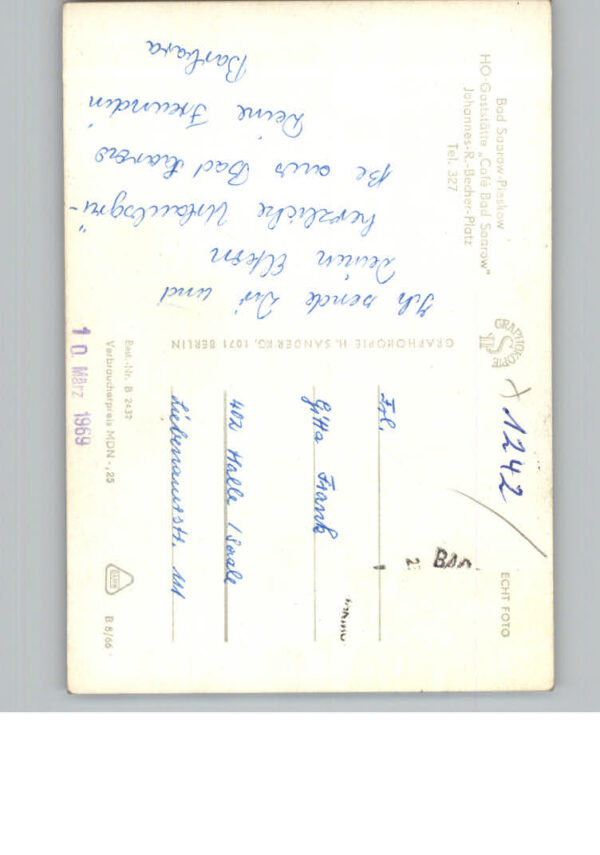 Bad Saarow-Pieskow
HO-Gaststätte „Café Bad Saarow"
Johannes-R.-Becher-Platz
Tel. 327
Ich sende Dir und
Deinen Eltern
herzliche Urlaubsgrü-
ße aus Bad Saarow
Deine Freundin
Barbara
GRAPHOKOPIE
GRAPHOKOPIE H. SANDER KG, 1071 BERLIN
Best.-Nr. B 2437
Verbraucherpreis MDN -,25
10. März 1969
1242
ECHT FOTO
Frl.
Gitta Frank
402 Halle / Saale
Liebenauerstr. 111
B 8/66